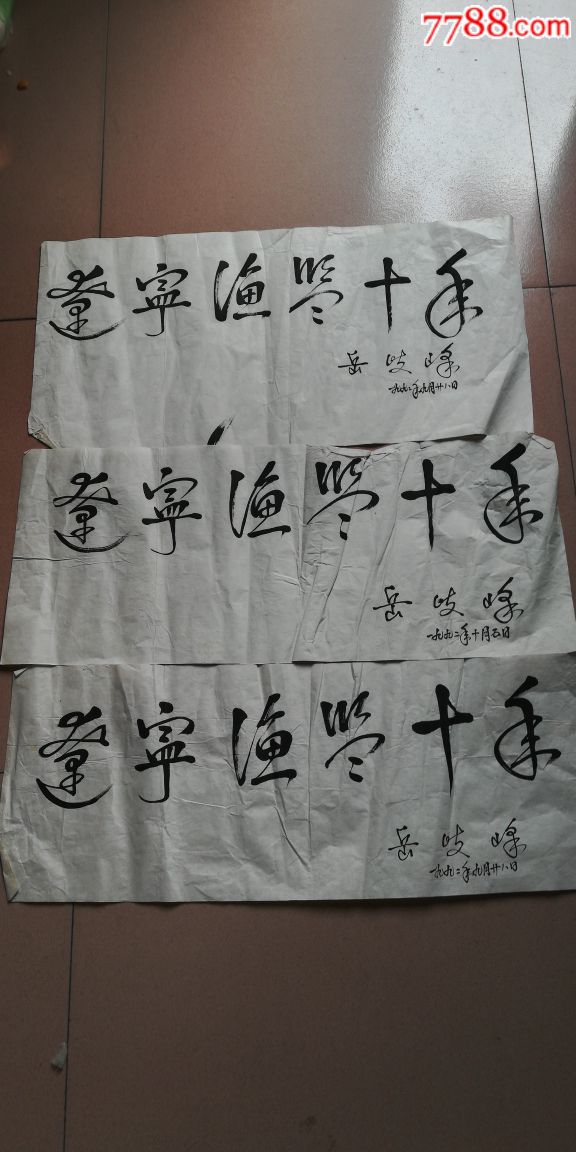 7788.com
遼寧渔监十年
岳岐峰
一九九二年九月廿八日
遼寧渔监十年
岳岐峰
一九九二年十月五日
遼寧渔监十年
岳岐峰
一九九二年九月廿八日